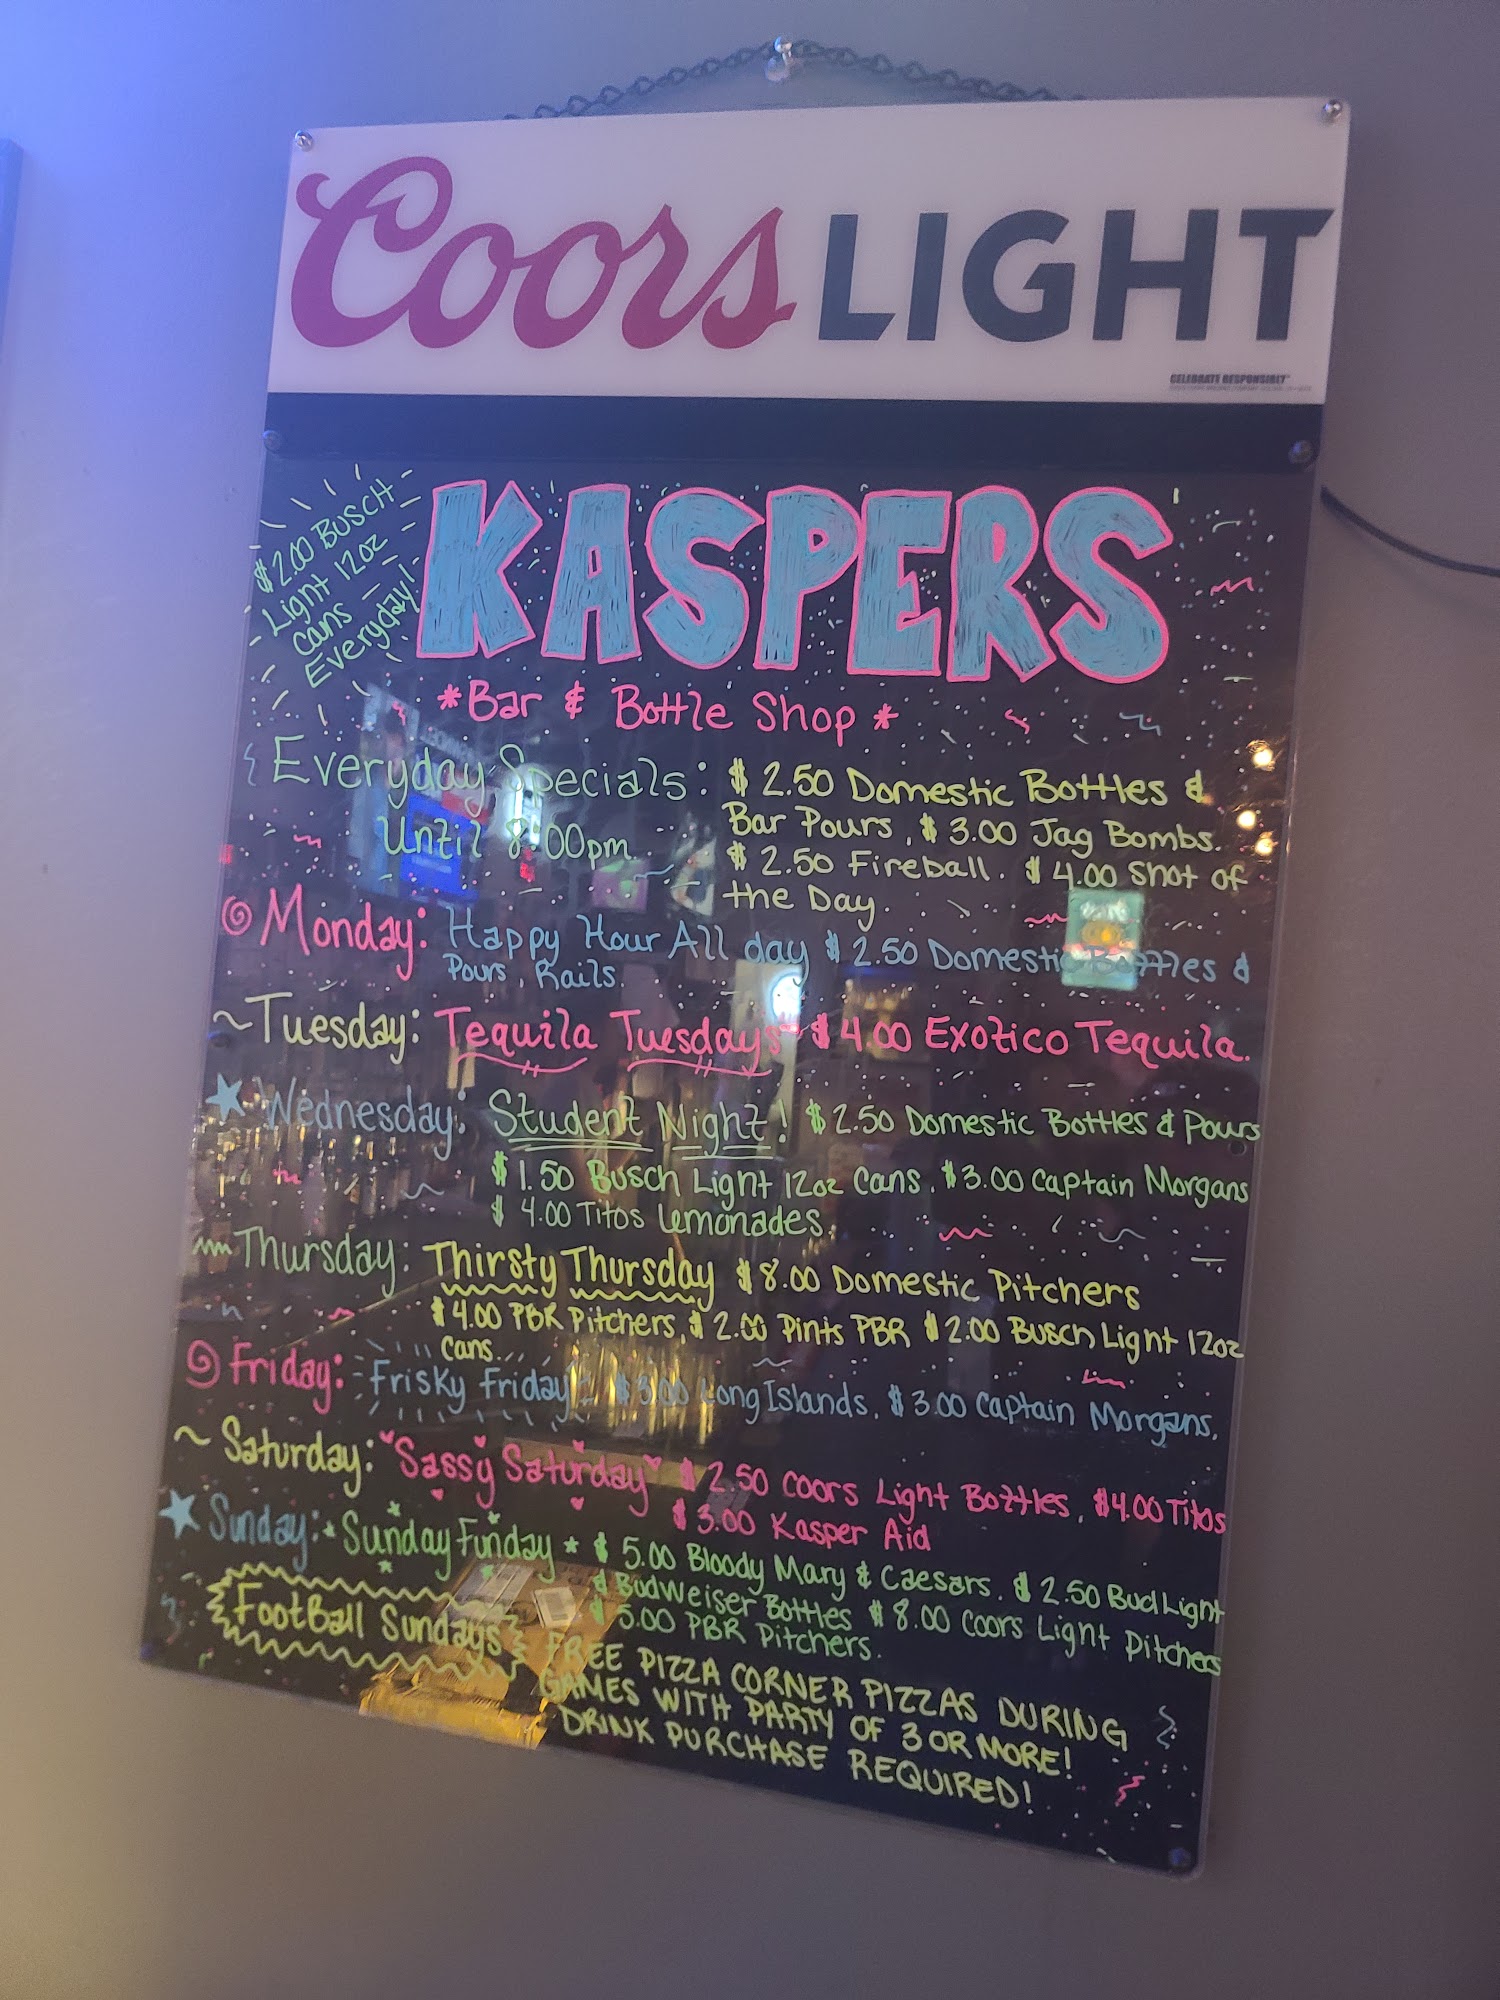 Coors LIGHT
CELEBRATE RESPONSIBLY
$2.00 BUSCH
Light 12oz
cans
Everyday!
KASPERS
*Bar & Bottle Shop*
Everyday Specials: $2.50 Domestic Bottles &
Until 8:00pm Bar Pours, $3.00 Jag Bombs.
$2.50 Fireball. $4.00 Shot of
the Day.
Monday: Happy Hour All day $2.50 Domestic Bottles &
Pours, Rails.
~Tuesday: Tequila Tuesdays $4.00 Exotico Tequila.
Wednesday: Student Night! $2.50 Domestic Bottles & Pours
$1.50 Busch Light 12oz Cans, $3.00 Captain Morgans
$4.00 Titos Lemonades.
Thursday: Thirsty Thursday $8.00 Domestic Pitchers
$4.00 PBR Pitchers, $2.00 Pints PBR $2.00 Busch Light 12oz
cans
Friday: Frisky Friday $3.00 Long Islands, $3.00 Captain Morgans,
~ Saturday: Sassy Saturday $2.50 Coors Light Bottles, $4.00 Titos
$3.00 Kasper Aid
Sunday: *Sunday Funday* $5.00 Bloody Mary & Caesars. $2.50 Bud Light
& Budweiser Bottles $8.00 Coors Light Pitchers
$5.00 PBR Pitchers.
FootBall Sundays FREE PIZZA CORNER PIZZAS DURING
GAMES WITH PARTY OF 3 OR MORE!
DRINK PURCHASE REQUIRED!